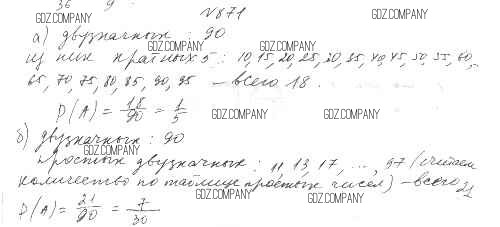 36 9
N 871
GDZ.COMPANY GDZ.COMPANY
а) двузначных : 90
GDZ.COMPANY GDZ.COMPANY
из них кратных 5 : 10, 15, 20, 25, 30, 35, 40, 45, 50, 55, 60,
65, 70, 75, 80, 85, 90, 95 – всего 18.
P(A) = 18/90 = 1/5
GDZ.COMPANY GDZ.COMPANY
б) двузначных : 90
GDZ.COMPANY
Простых двузначных : 11, 13, 17, ..., 97 (считаем
количество по таблице простых чисел) – всего 21
GDZ.COMPANY GDZ.COMPANY
P(A) = 21/90 = 7/30